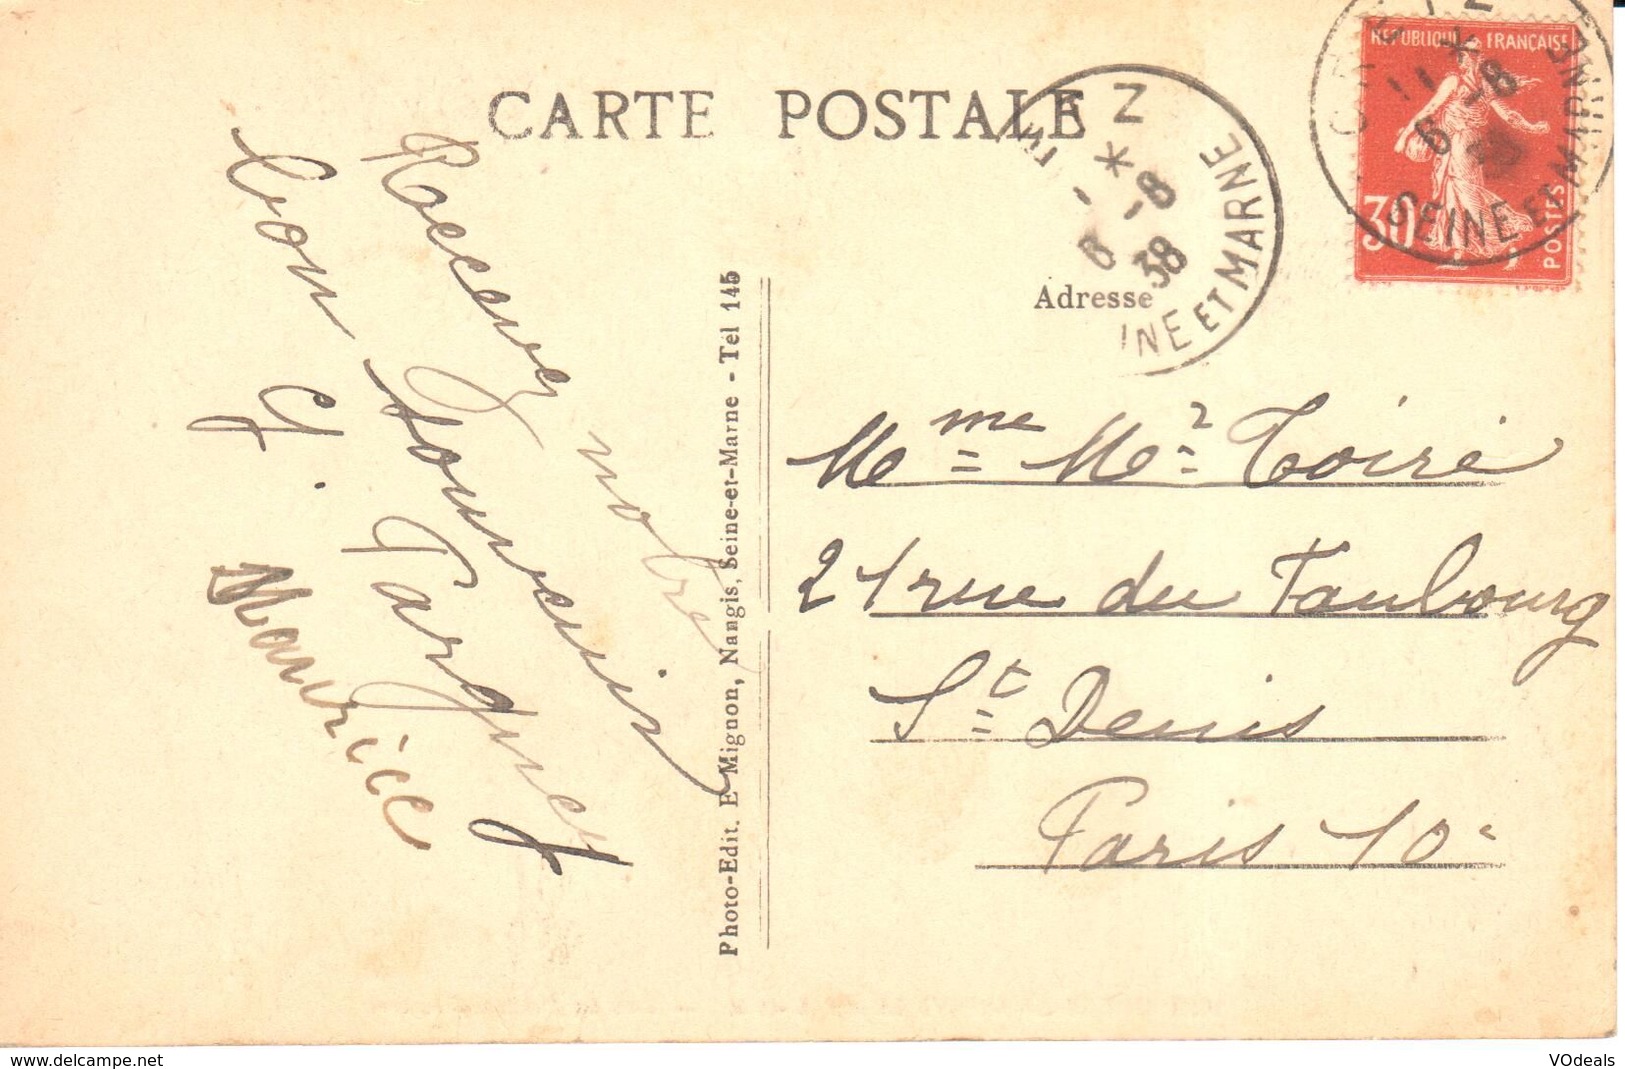 CARTE POSTALE
REPUBLIQUE FRANÇAISE
30
POSTES
6 -8
SEINE ET MARNE
6 -8
38
INE ET MARNE
Adresse
Mme Mr Toiré
21 rue du Faubourg
St Denis
Paris 10e
Recevez notre
bon souvenir
Maurice
Photo-Edit. E Mignon, Nangis, Seine-et-Marne - Tél 145
http://www.delcampe.net
VOdeals